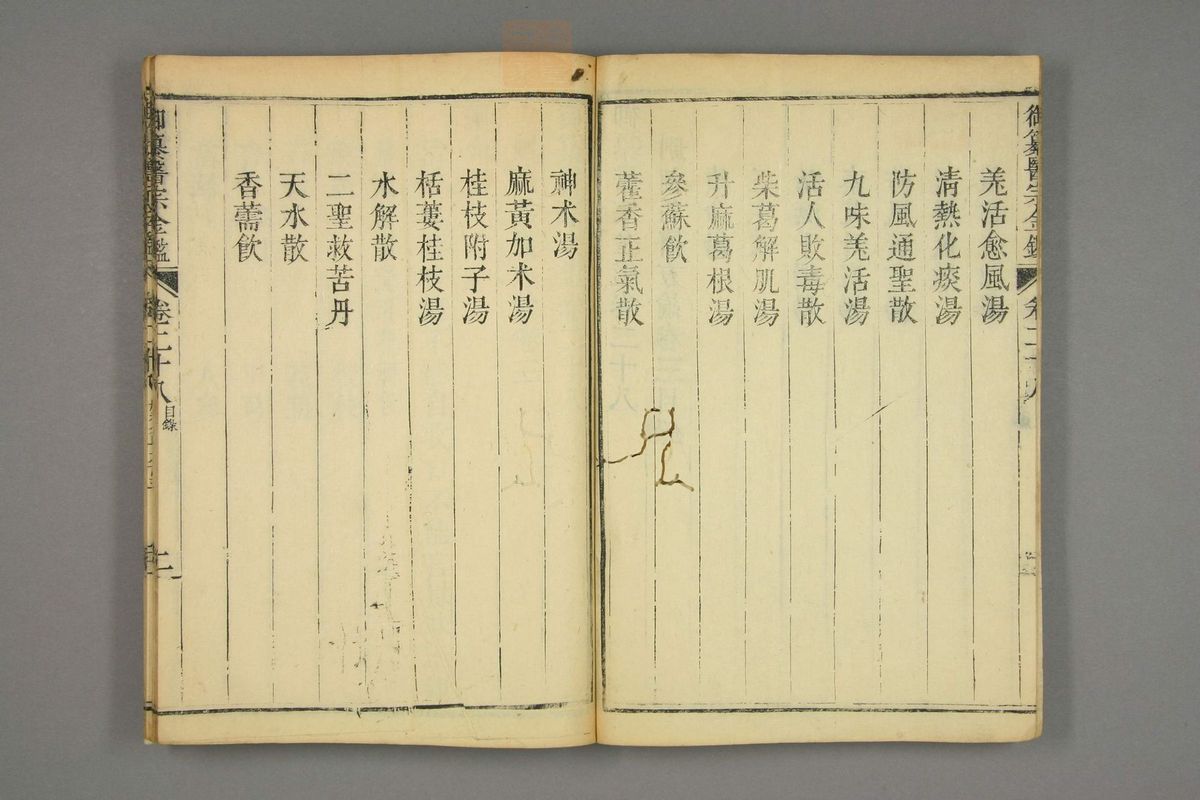 御纂醫宗金鑑
卷二十八
羌活愈風湯
淸熱化痰湯
防風通聖散
九味羌活湯
活人敗毒散
柴葛解肌湯
升麻葛根湯
參蘇飲
藿香正氣散
神术湯
麻黃加术湯
桂枝附子湯
栝蔞桂枝湯
水解散
二聖救苦丹
天水散
香薷飲
御纂醫宗金鑑
卷二十八
目錄